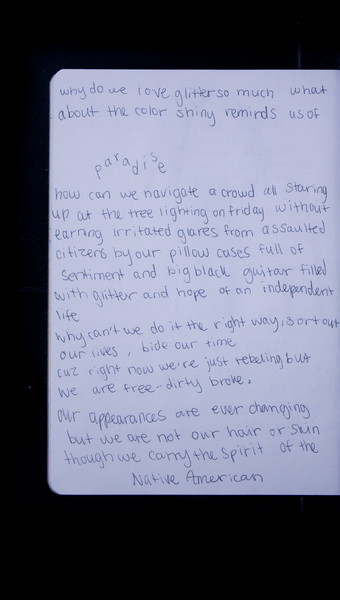 why do we love glitter so much what
about the color shiny reminds us of
paradise
how can we navigate a crowd all staring
up at the tree lighting on friday without
earning irritated glares from assaulted
citizens by our pillow cases full of
sentiment and big black guitar filled
with glitter and hope of an independent
life
why can't we do it the right way, sort out
our lives, bide our time
cuz right now we're just rebeling but
we are free-- dirty broke.
our appearances are ever changing
but we are not our hair or skin
though we carry the spirit of the
Native American